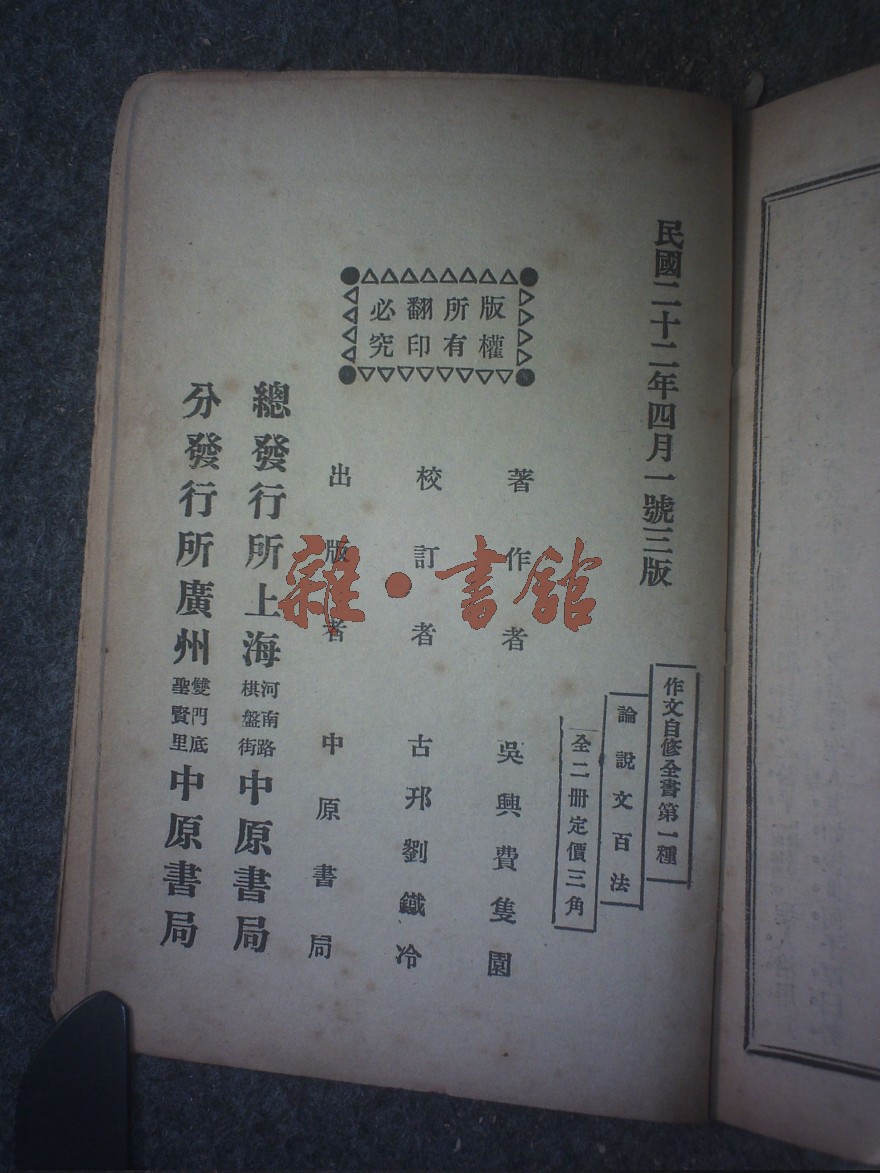 民國二十二年四月一號三版
作文自修全書第一種
論說文百法
全二册定價三角
版權
所有
翻印
必究
著作者 吳興費隻園
校訂者 古邗劉鐵冷
出版者 中原書局
總發行所上海河南路棋盤街中原書局
分發行所廣州雙門底聖賢里中原書局
雜·書館